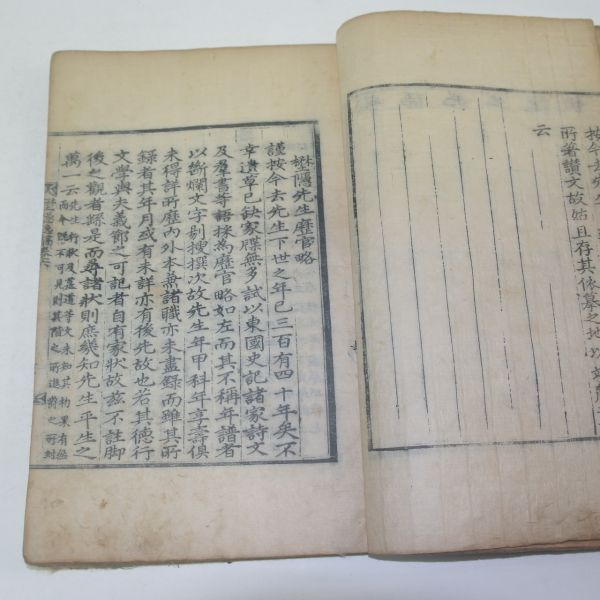 按今去先生下世之年
所著讚文故姑且存其依慕之地以
云
懋隱先生歷官略
謹按今去先生下世之年已三百有四十年矣不
幸遺草已缺家牒無多試以東國史記諸家詩文
及羣書等語採為歷官略如左而其不稱年譜者
以斷爛文字剔搜撰次故先生年甲科年享壽俱
未得詳所歷內外本兼諸職亦未盡錄而雖其所
錄者其年月或有未詳亦有後先故也若其德行
文學與夫義節之可記者自有家狀故茲不註脚
後之觀者繇是而尋諸狀則庶幾知先生平生之
萬一云先生行狀及